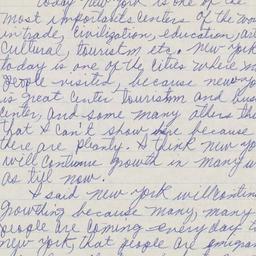 Today New York is one of the
most importants centers of the wor
in trade, civilization, education, art
cultural, tourism etc. New York
today is one of the cities where mo
people visited, because newyor
is great center tourism and busi
center, and some many others the
that I can't show here because
there are planty. I think New yo
will continue growth in many w
as till now.
I said new york will contin
growding because many, many
people are coming everyday to
new york, that people are emigran